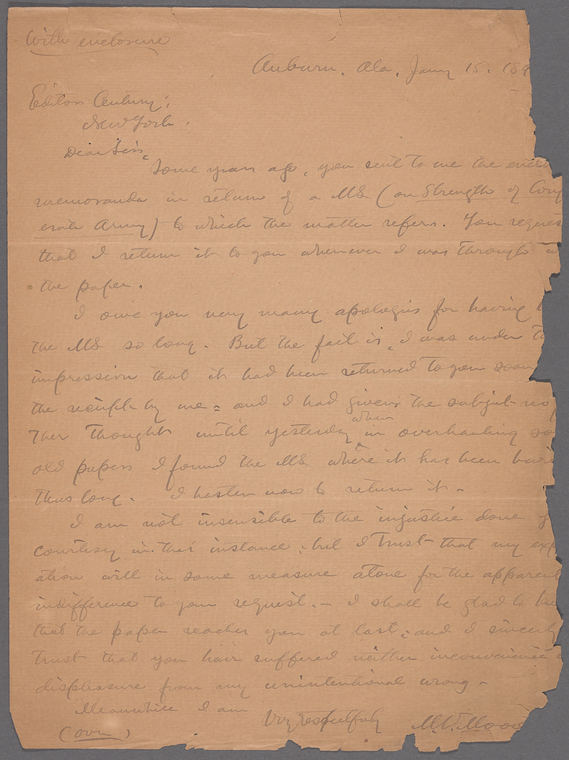 With enclosure
Auburn, Ala, Jany 15. 189
Editor Century,
New York.
Dear Sir,
Some years ago, you sent to me the
memoranda in return of a MS (on Strengths of
Army) to which the matter refers. You
that I return it to you whenever I was through
the paper.
I owe you very many apologies for having
the MS so long. But the fact is, I was under
impression that it had been returned to you soon
the receipt by me = and I had given the subject no
thought until yesterday when in overhauling
old papers I found the MS where it has been
thus long. I hasten now to return it -
I am not insensible to the injustice done
courtesy in this instance, but I trust that my
ation will in some measure atone for the apparent
indifference to your request. - I shall be glad to
that the paper reaches you at last, and I
trust that you have suffered neither inconvenience
displeasure from my unintentional wrong -
Meanwhile I am
Very respectfully
(over)